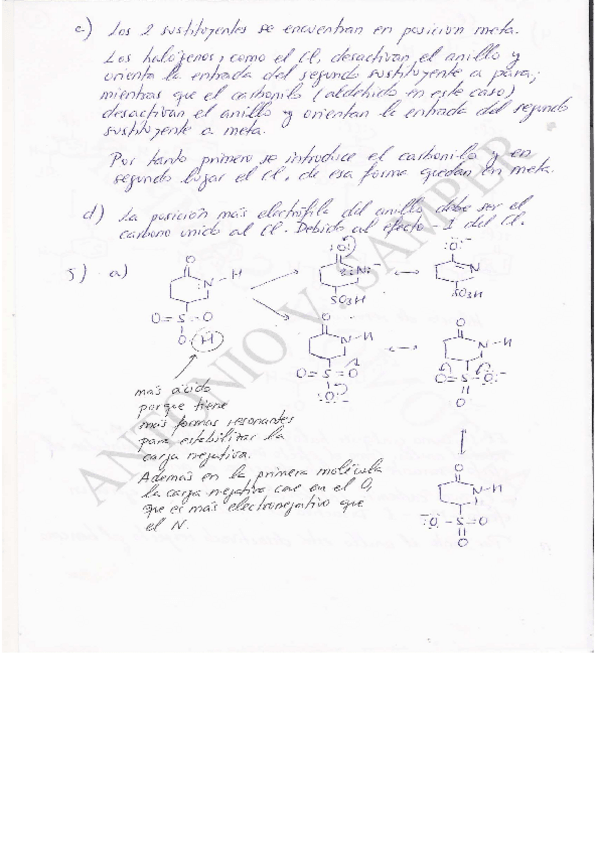 c) Los 2 sustituyentes se encuentran en posición meta.
Los halógenos, como el Cl, desactivan el anillo y
orienta la entrada del segundo sustituyente a para;
mientras que el carbonilo (aldehído en este caso)
desactivan el anillo y orientan la entrada del segundo
sustituyente a meta.
Por tanto primero se introduce el carbonilo y en
segundo lugar el Cl, de esa forma quedan en meta.
d) La posición más electrófila del anillo debe ser el
carbono unido al Cl. Debido al efecto -I del Cl.
5) a)
O
N - H
O=S=O
O H
O
N
SO3H
O
N
SO3H
O
N-H
O=S=O
O
O
N-H
O=S-O
O
O
N-H
O-S=O
O
más ácido
porque tiene
más formas resonantes
para estabilizar la
carga negativa.
Además en la primera molécula
la carga negativa cae en el O,
que es más electronegativo que
el N.
ANTONIO V. SAMPER.